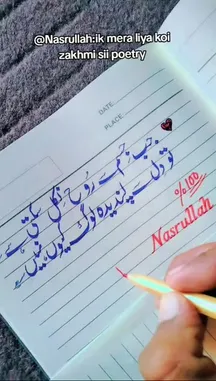 @Nasrullah:ik mera liya koi
zakhmi sii poetry
DATE:
PLACE:
جب جسم سے روح نکل سکتی ہے
تو دل سے پسندیدہ لوگ کیوں نہیں
%100
Nasrullah